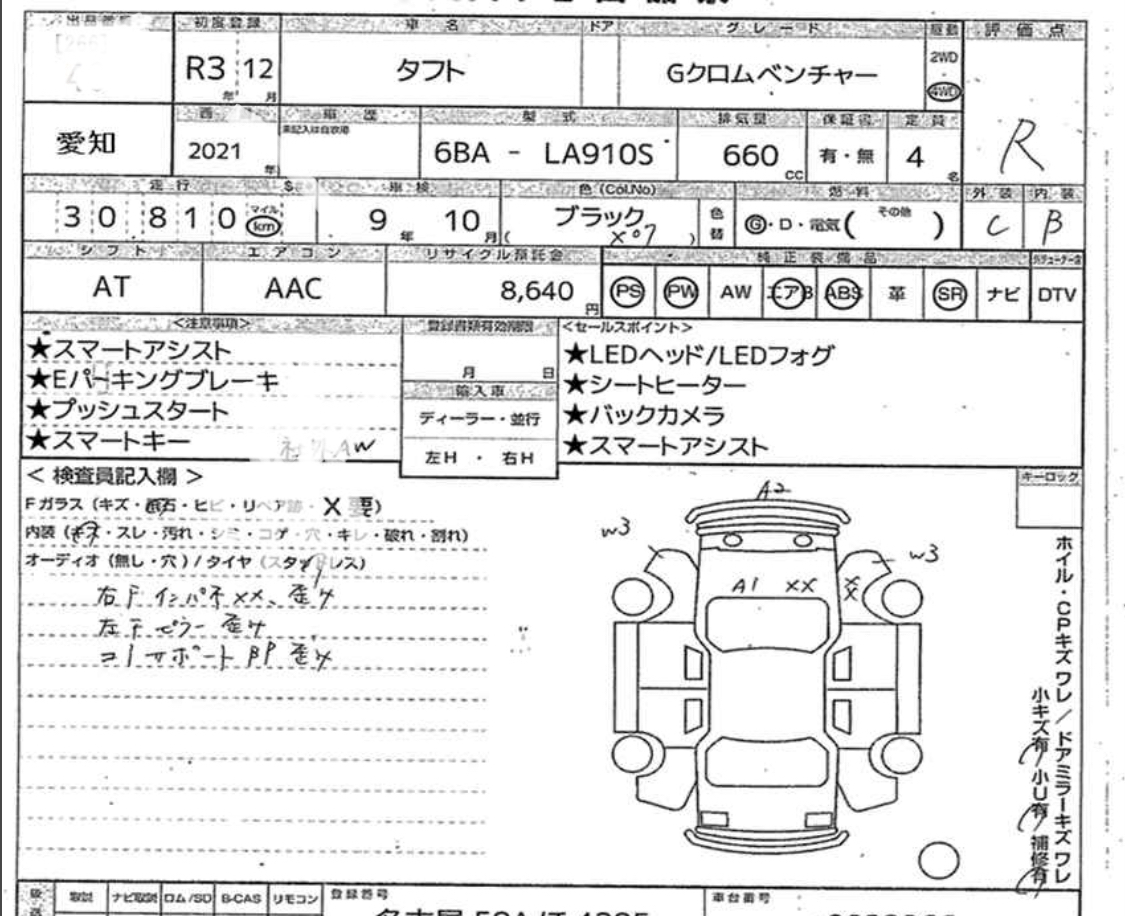 初度登録 車名 ドア グレード 駆動 評価点
R3 12 タフト Gクロムベンチャー 2WD
年 月 4WD
R
愛知 車歴 型式 排気量 保証書 定員
未記入は自家用
2021 年 6BA - LA910S 660 cc 有・無 4 名
走行 車検 色 (Col.No) 燃料 外装 内装
30810 マイル km 9 年 10 月 ブラック 色替 G・D・電気( その他 ) C B
( X07 )
シフト エアコン リサイクル預託金 純正装備品
AT AAC 8,640 円 PS PW AW エアB ABS 革 SR ナビ DTV
<注意事項> 登録書類有効期限 <セールスポイント>
★スマートアシスト ★LEDヘッド/LEDフォグ
★Eパーキングブレーキ 月 日 ★シートヒーター
輸入車
★プッシュスタート ディーラー・並行 ★バックカメラ
★スマートキー 社外AW 左H ・ 右H ★スマートアシスト
< 検査員記入欄 > キーロック
Fガラス (キズ・飛石・ヒビ・リペア跡・X 要)
内装 (キズ・スレ・汚れ・シミ・コゲ・穴・キレ・破れ・割れ)
オーディオ (無し・穴) / タイヤ (スタッドレス)
右F インパネ XX、歪み
左Fピラー 歪み
コーナーサポート 歪み
A2
W3 W3
A1 XX XX
ホイル・CPキズワレ/ドアミラーキズワレ
小キズ有 小U有 補修有
取説 ナビ取説 ロム/SD B-CAS リモコン 登録番号 車台番号